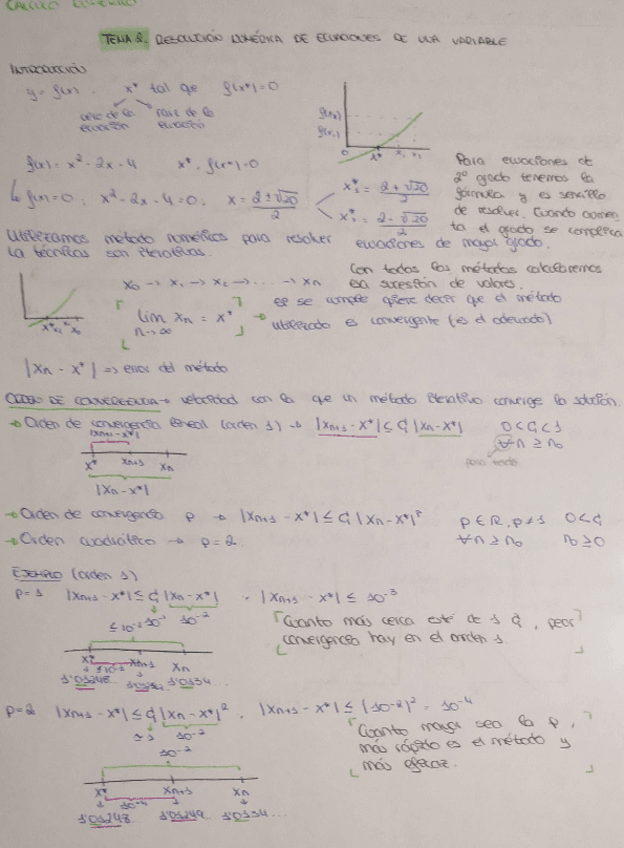 CÁLCULO NUMÉRICO
TEMA 2. RESOLUCIÓN NUMÉRICA DE ECUACIONES DE UNA VARIABLE
INTRODUCCIÓN
y = f(x). x* tal que f(x*)=0
cero de la ecuación
raíz de la ecuación
f(x) = x² - 2x - 4 x*, f(x*)=0
f(x)=0; x² - 2x - 4 = 0; x = 2±√20 / 2
x* = 2 + √20 / 2
x* = 2 - √20 / 2
Para ecuaciones de
2º grado tenemos la
fórmula y es sencillo
de resolver. Cuando aumen
ta el grado se complica
Utilizamos método numéricos para resolver ecuaciones de mayor grado.
La técnicas son iterativas.
x₀ → x₁ → x₂ → ... → xn
Con todos los métodos calcularemos
esa sucesión de valores.
lim xn = x*
n→∞
si se cumple quiere decir que el método
utilizado es convergente (es el adecuado)
|xn - x*| => error del método
ORDEN DE CONVERGENCIA → velocidad con la que un método iterativo converge la solución.
→ Orden de convergencia lineal (orden 1) → |xn+1 - x*| ≤ C |xn - x*| 0 < C < 1
∀n ≥ n₀
para todo
|xn+1 - x*|
x* xn+1 xn
|xn - x*|
→ Orden de convergencia p → |xn+1 - x*| ≤ C |xn - x*|ᵖ p ∈ ℝ, p ≠ 1 0 < C
→ Orden cuadrático → p = 2 ∀n ≥ n₀ n₀ ≥ 0
EJEMPLO (orden 1)
p = 1 |xn+1 - x*| ≤ C |xn - x*| . |xn+1 - x*| ≤ 10⁻³
≤ 10⁻³ 10⁻¹ 10⁻²
Cuanto más cerca esté de 1 C, peor
convergencia hay en el orden 1.
x* xn+1 xn
1'01248... 1'0134...
p = 2 |xn+1 - x*| ≤ C |xn - x*|², |xn+1 - x*| ≤ (10⁻²)² = 10⁻⁴
≈ 1 10⁻²
10⁻²
Cuanto mayor sea la p,
más rápido es el método y
más eficaz.
x* xn+1 xn
10⁻⁴
1'01248 1'01249 1'0134...